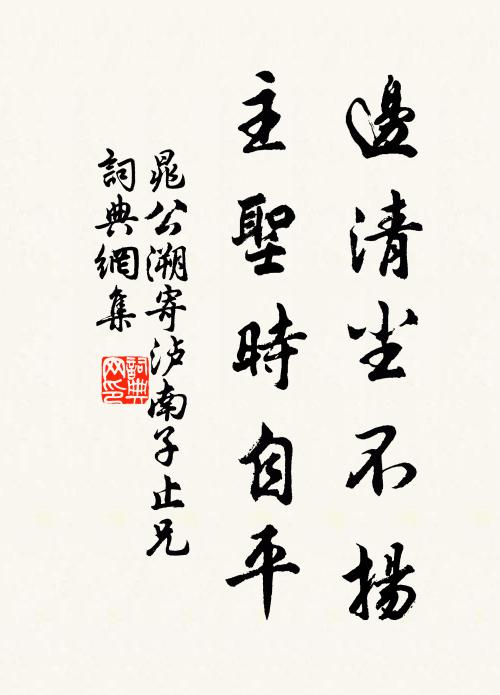 邊清尘不揚
主聖時自平
晁公溯寄泸南子止兄
詞典網集
詞典
网印